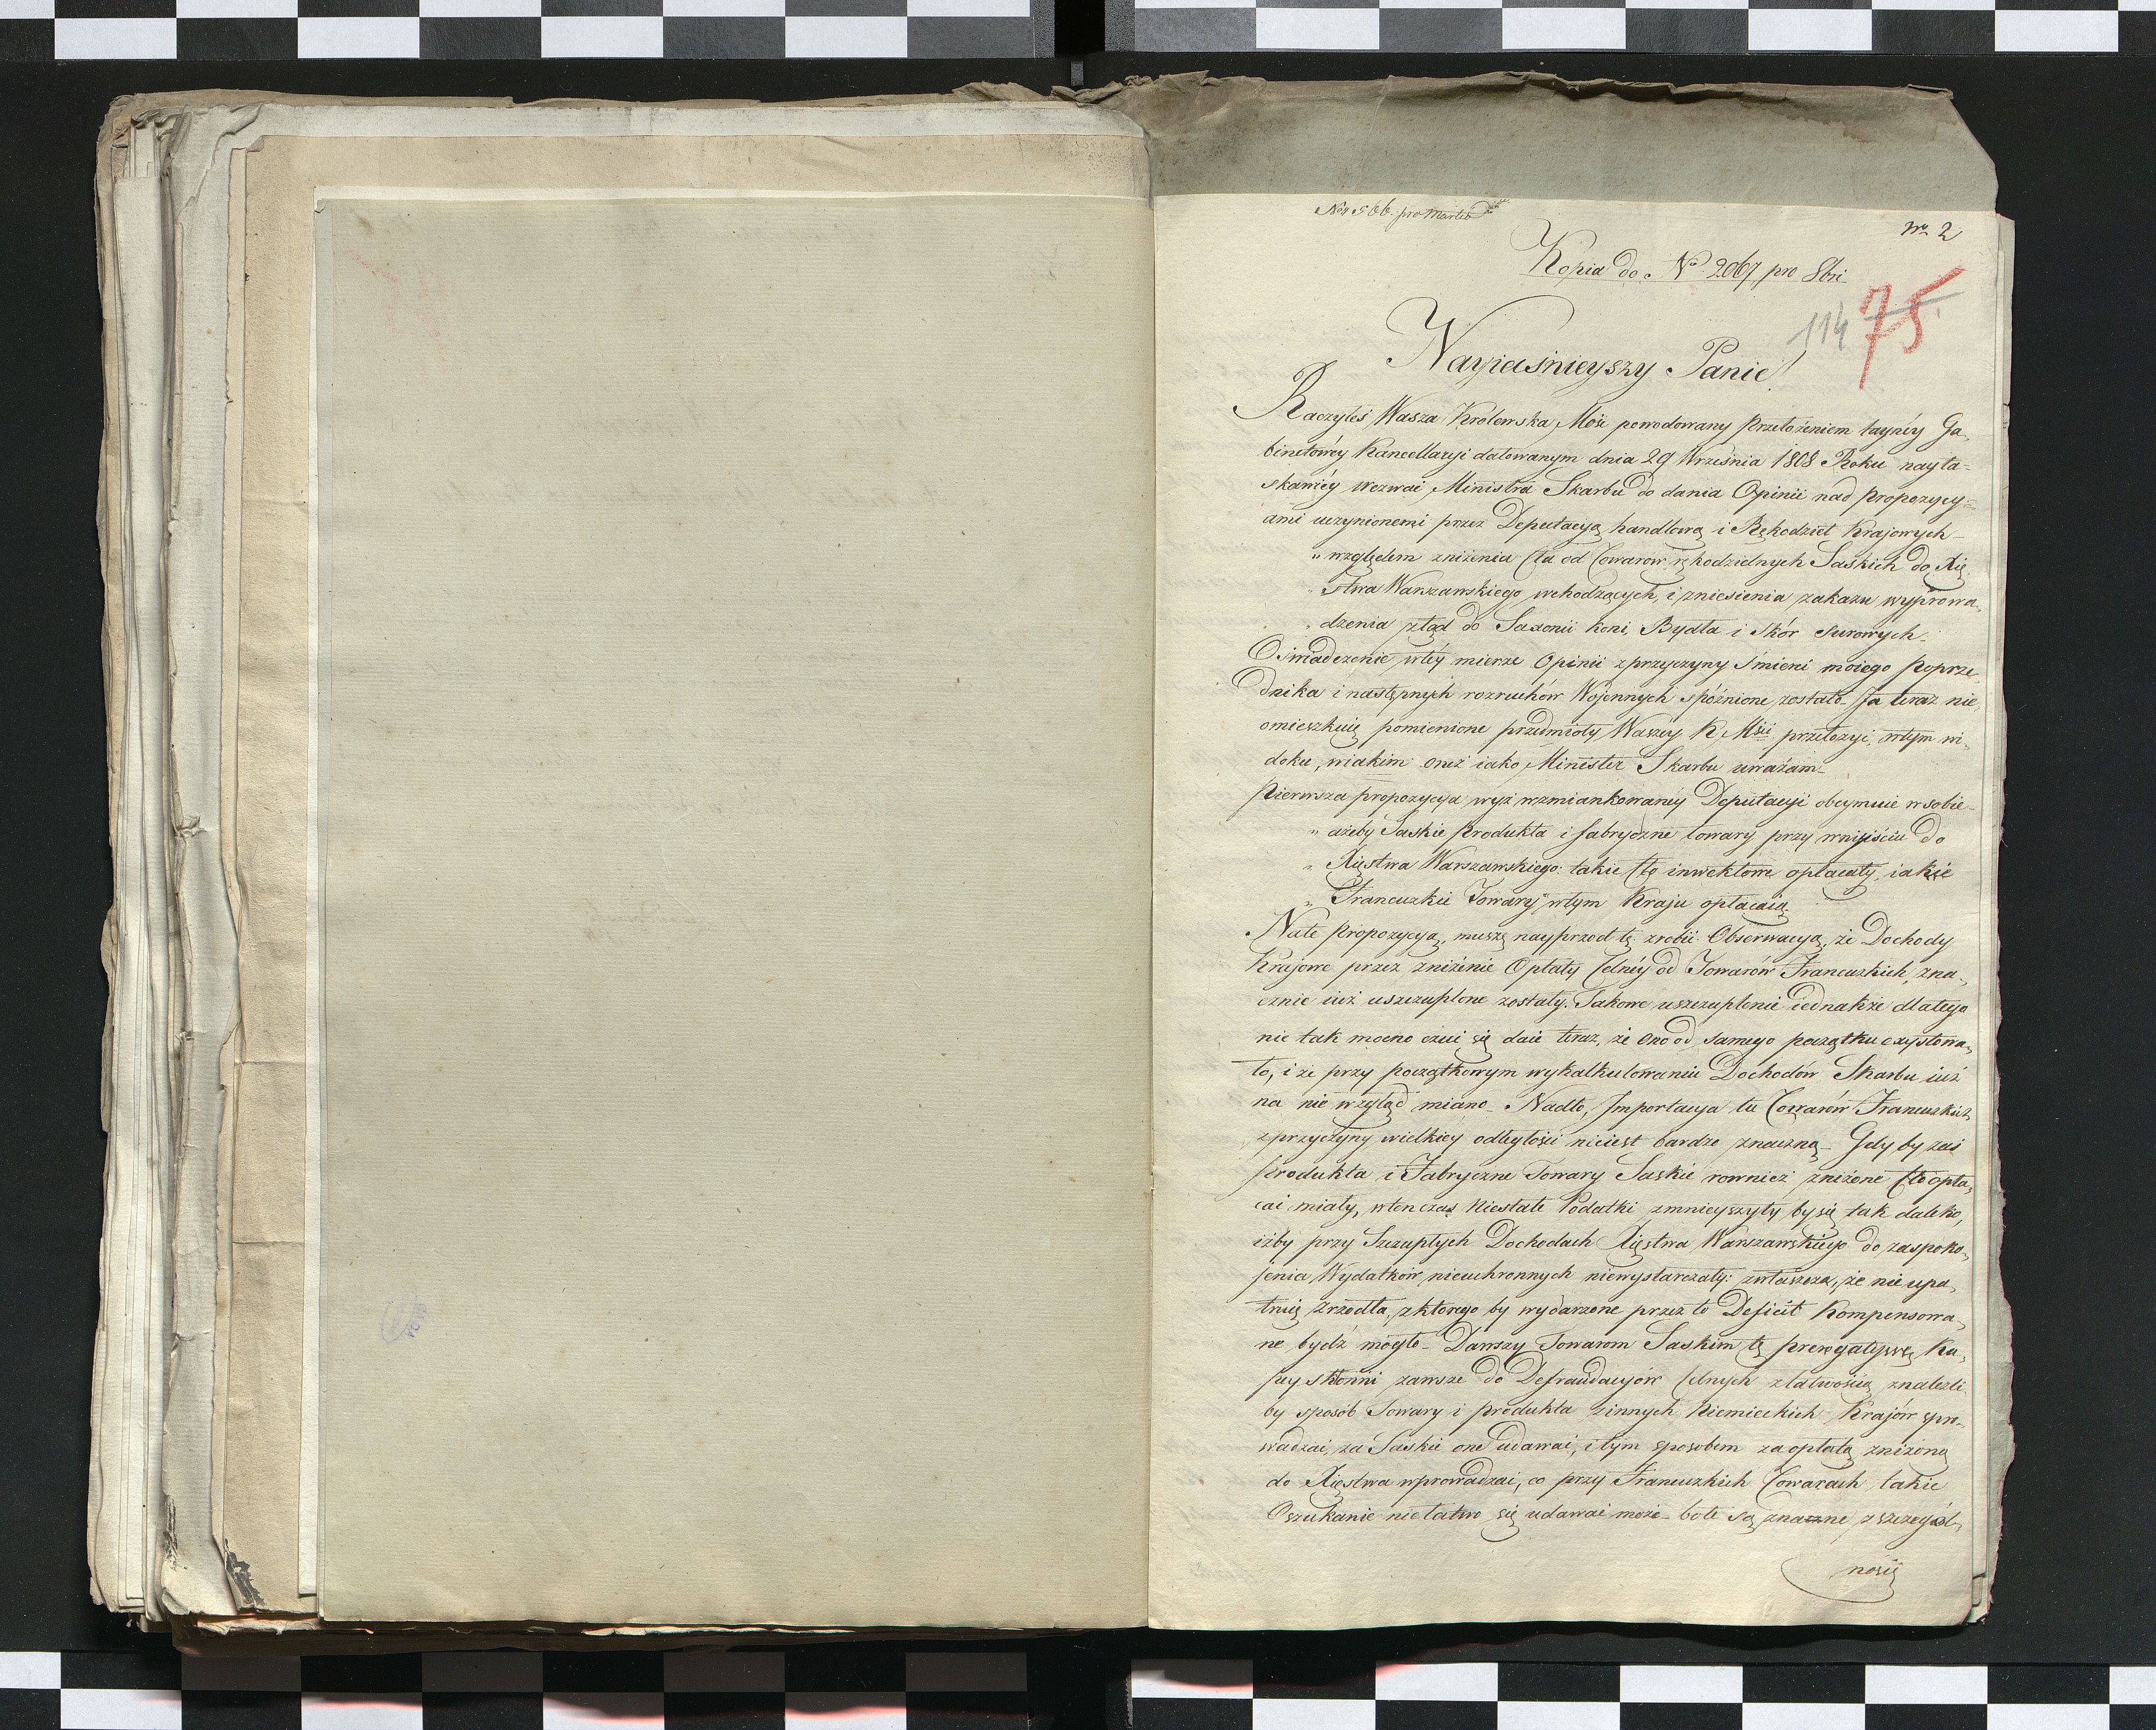 Nr 1566. pro Martio
nr 2
Kopia do Nº 2067 pro 8bri
114 75
Nayiaśnieyszy Panie!
Raczyłeś Wasza Królewska Mość powodowany Przełożeniem taynéy Ga-
binetowéy Kancellaryi datowanym dnia 29 Września 1808 Roku nayła-
skawiéy wezwać Ministra Skarbu do dania Opinii nad propozycy-
ami uczynionemi przez Deputacyą handlową i Rękodzieł Krajowych-
" względem zniżenia Cła od Towarów rękodzielnych Saskich do Xię
" stwa Warszawskiego wchodzących, i zniesienia zakazu wyprowa-
" dzenia ztąd do Saxonii koni, Bydła i skór surowych.
Oświadczenie w téy mierze Opinii z przyczyny śmierci moiego Poprze-
dnika i następnych rozruchów Wojennych spóźnione zostało- Ja teraz nie-
omieszkuię pomienione przedmioty Waszéy K. Mści przełożyć w tym wi-
doku, w iakim one iako Minister Skarbu uważam-
Pierwsza propozycya wyż wzmiankowanéy Deputacyi obeymuie w sobie-
" ażeby Saskie Produkta i fabryczne towary przy wniyściu do
" Xięstwa Warszawskiego takie Cło inwektowe opłacały, iakie
" Francuzkie Towary w tym Kraju opłacaią.
Na te Propozycyą, muszę nayprzod tę zrobić Obserwacyą, że Dochody
Krajowe przez zniżenie Opłaty Celnéy od Towarów Francuzkich, zna-
cznie iuż uszczuplone zostały. Takowe uszczuplenie iednakże dlatego
nie tak mocno czuć się daie teraz, że ono od samego początku exystowa-
ło, i że przy początkowym wykalkulowaniu Dochodów Skarbu iuż
na nie wzgląd miano- Nadto, Importacya tu Towarów Francuzkich
z przyczyny wielkiey odległości nieiest bardzo znaczną- Gdy by zaś
Produkta i Fabryczne Towary Saskie rownież zniżone Cło opła-
cać miały, wtenczas Niestałe Podatki zmnieyszyły by się tak daleko,
iżby przy Szczupłych Dochodach Xięstwa Warszawskiego do zaspoko-
jenia Wydatków nieuchronnych niewystarczały: zwłaszcza, że nie upa-
truię źrzodła, z ktorego by wydarzone przez to Deficit kompensowa-
ne bydź mogło- Dawszy Towarom Saskim tę prerogatywę Ku-
pcy skłonni zawsze do Defraudacyów Celnych z łatwością znaleźli
by sposób Towary i produkta z innych Niemieckich Krajów spro-
wadzać, za Saskie one udawać, i tym sposobem za opłatą zniżoną
do Xięstwa wprowadzać, co przy Francuzkich Towarach takie
Oszukanie niełatwo się udawać może- bo te są znaczne z szczegól-
ności